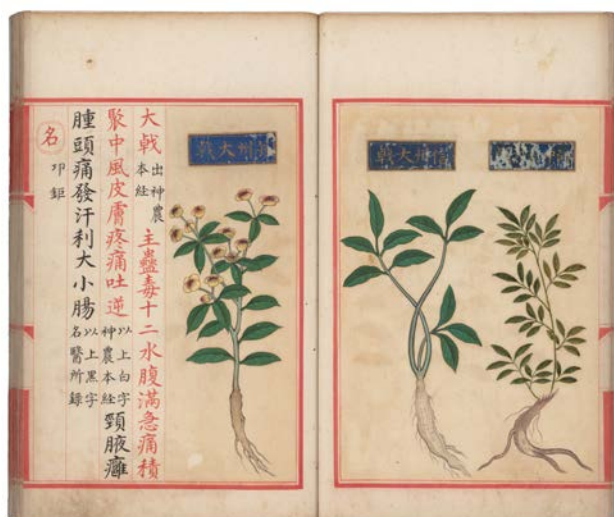 州大戟
州大戟
大戟出神農本經主蠱毒十二水腹滿急痛積
聚中風皮膚疼痛吐逆以上白字神農本經頸腋癰
腫頭痛發汗利大小腸以上黑字名醫所錄
名邛鉅